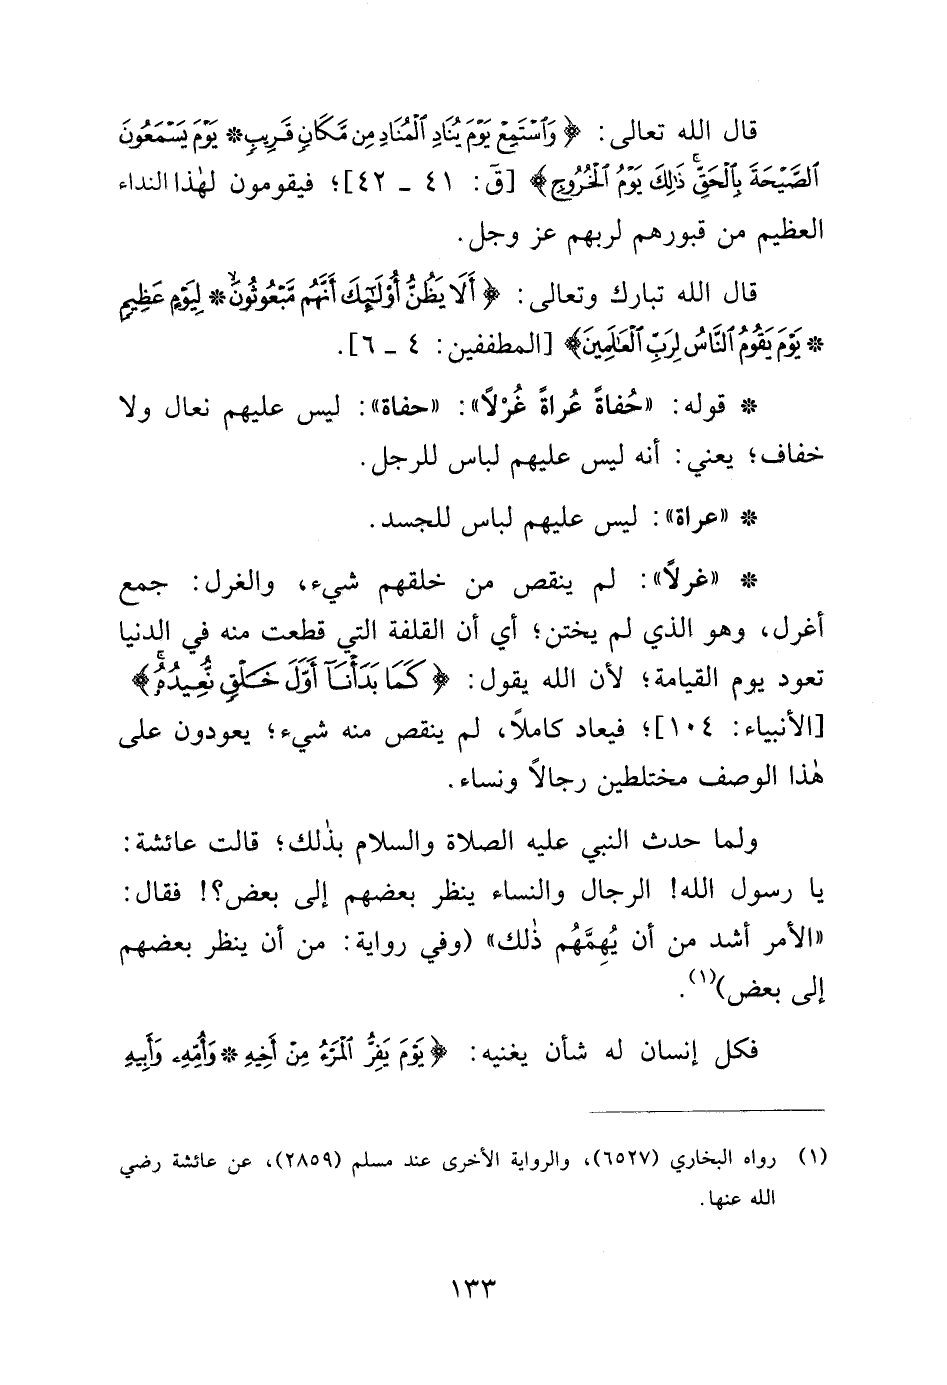 قال الله تعالى: ﴿وَٱسْتَمِعْ يَوْمَ يُنَادِ ٱلْمُنَادِ مِن مَّكَانٍ قَرِيبٍ * يَوْمَ يَسْمَعُونَ
ٱلصَّيْحَةَ بِٱلْحَقِّ ۚ ذَٰلِكَ يَوْمُ ٱلْخُرُوجِ﴾ [قۤ: ٤١ ـ ٤٢]؛ فيقومون لهٰذا النداء
العظيم من قبورهم لربهم عز وجل.
قال الله تبارك وتعالى: ﴿أَلَا يَظُنُّ أُوْلَـٰٓئِكَ أَنَّهُم مَّبْعُوثُونَ ۙ * لِيَوْمٍ عَظِيمٍ
* يَوْمَ يَقُومُ ٱلنَّاسُ لِرَبِّ ٱلْعَـٰلَمِينَ﴾ [المطففين: ٤ ـ ٦].
* قوله: «حُفاةً عُراةً غُرْلاً»: «حفاة»: ليس عليهم نعال ولا
خفاف؛ يعني: أنه ليس عليهم لباس للرجل.
* «عراة»: ليس عليهم لباس للجسد.
* «غرلاً»: لم ينقص من خلقهم شيء، والغرل: جمع
أغرل، وهو الذي لم يختن؛ أي أن القلفة التي قطعت منه في الدنيا
تعود يوم القيامة؛ لأن الله يقول: ﴿كَمَا بَدَأْنَآ أَوَّلَ خَلْقٍ نُّعِيدُهُۥ ۚ﴾
[الأنبياء: ١٠٤]؛ فيعاد كاملاً، لم ينقص منه شيء؛ يعودون على
هٰذا الوصف مختلطين رجالاً ونساء.
ولما حدث النبي عليه الصلاة والسلام بذٰلك؛ قالت عائشة:
يا رسول الله! الرجال والنساء ينظر بعضهم إلى بعض؟! فقال:
«الأمر أشد من أن يُهِمَّهُم ذٰلك» (وفي رواية: من أن ينظر بعضهم
إلى بعض)(١).
فكل إنسان له شأن يغنيه: ﴿يَوْمَ يَفِرُّ ٱلْمَرْءُ مِنْ أَخِيهِ * وَأُمِّهِۦ وَأَبِيهِ
(١) رواه البخاري (٦٥٢٧)، والرواية الأخرى عند مسلم (٢٨٥٩)، عن عائشة رضي
الله عنها.
١٣٣